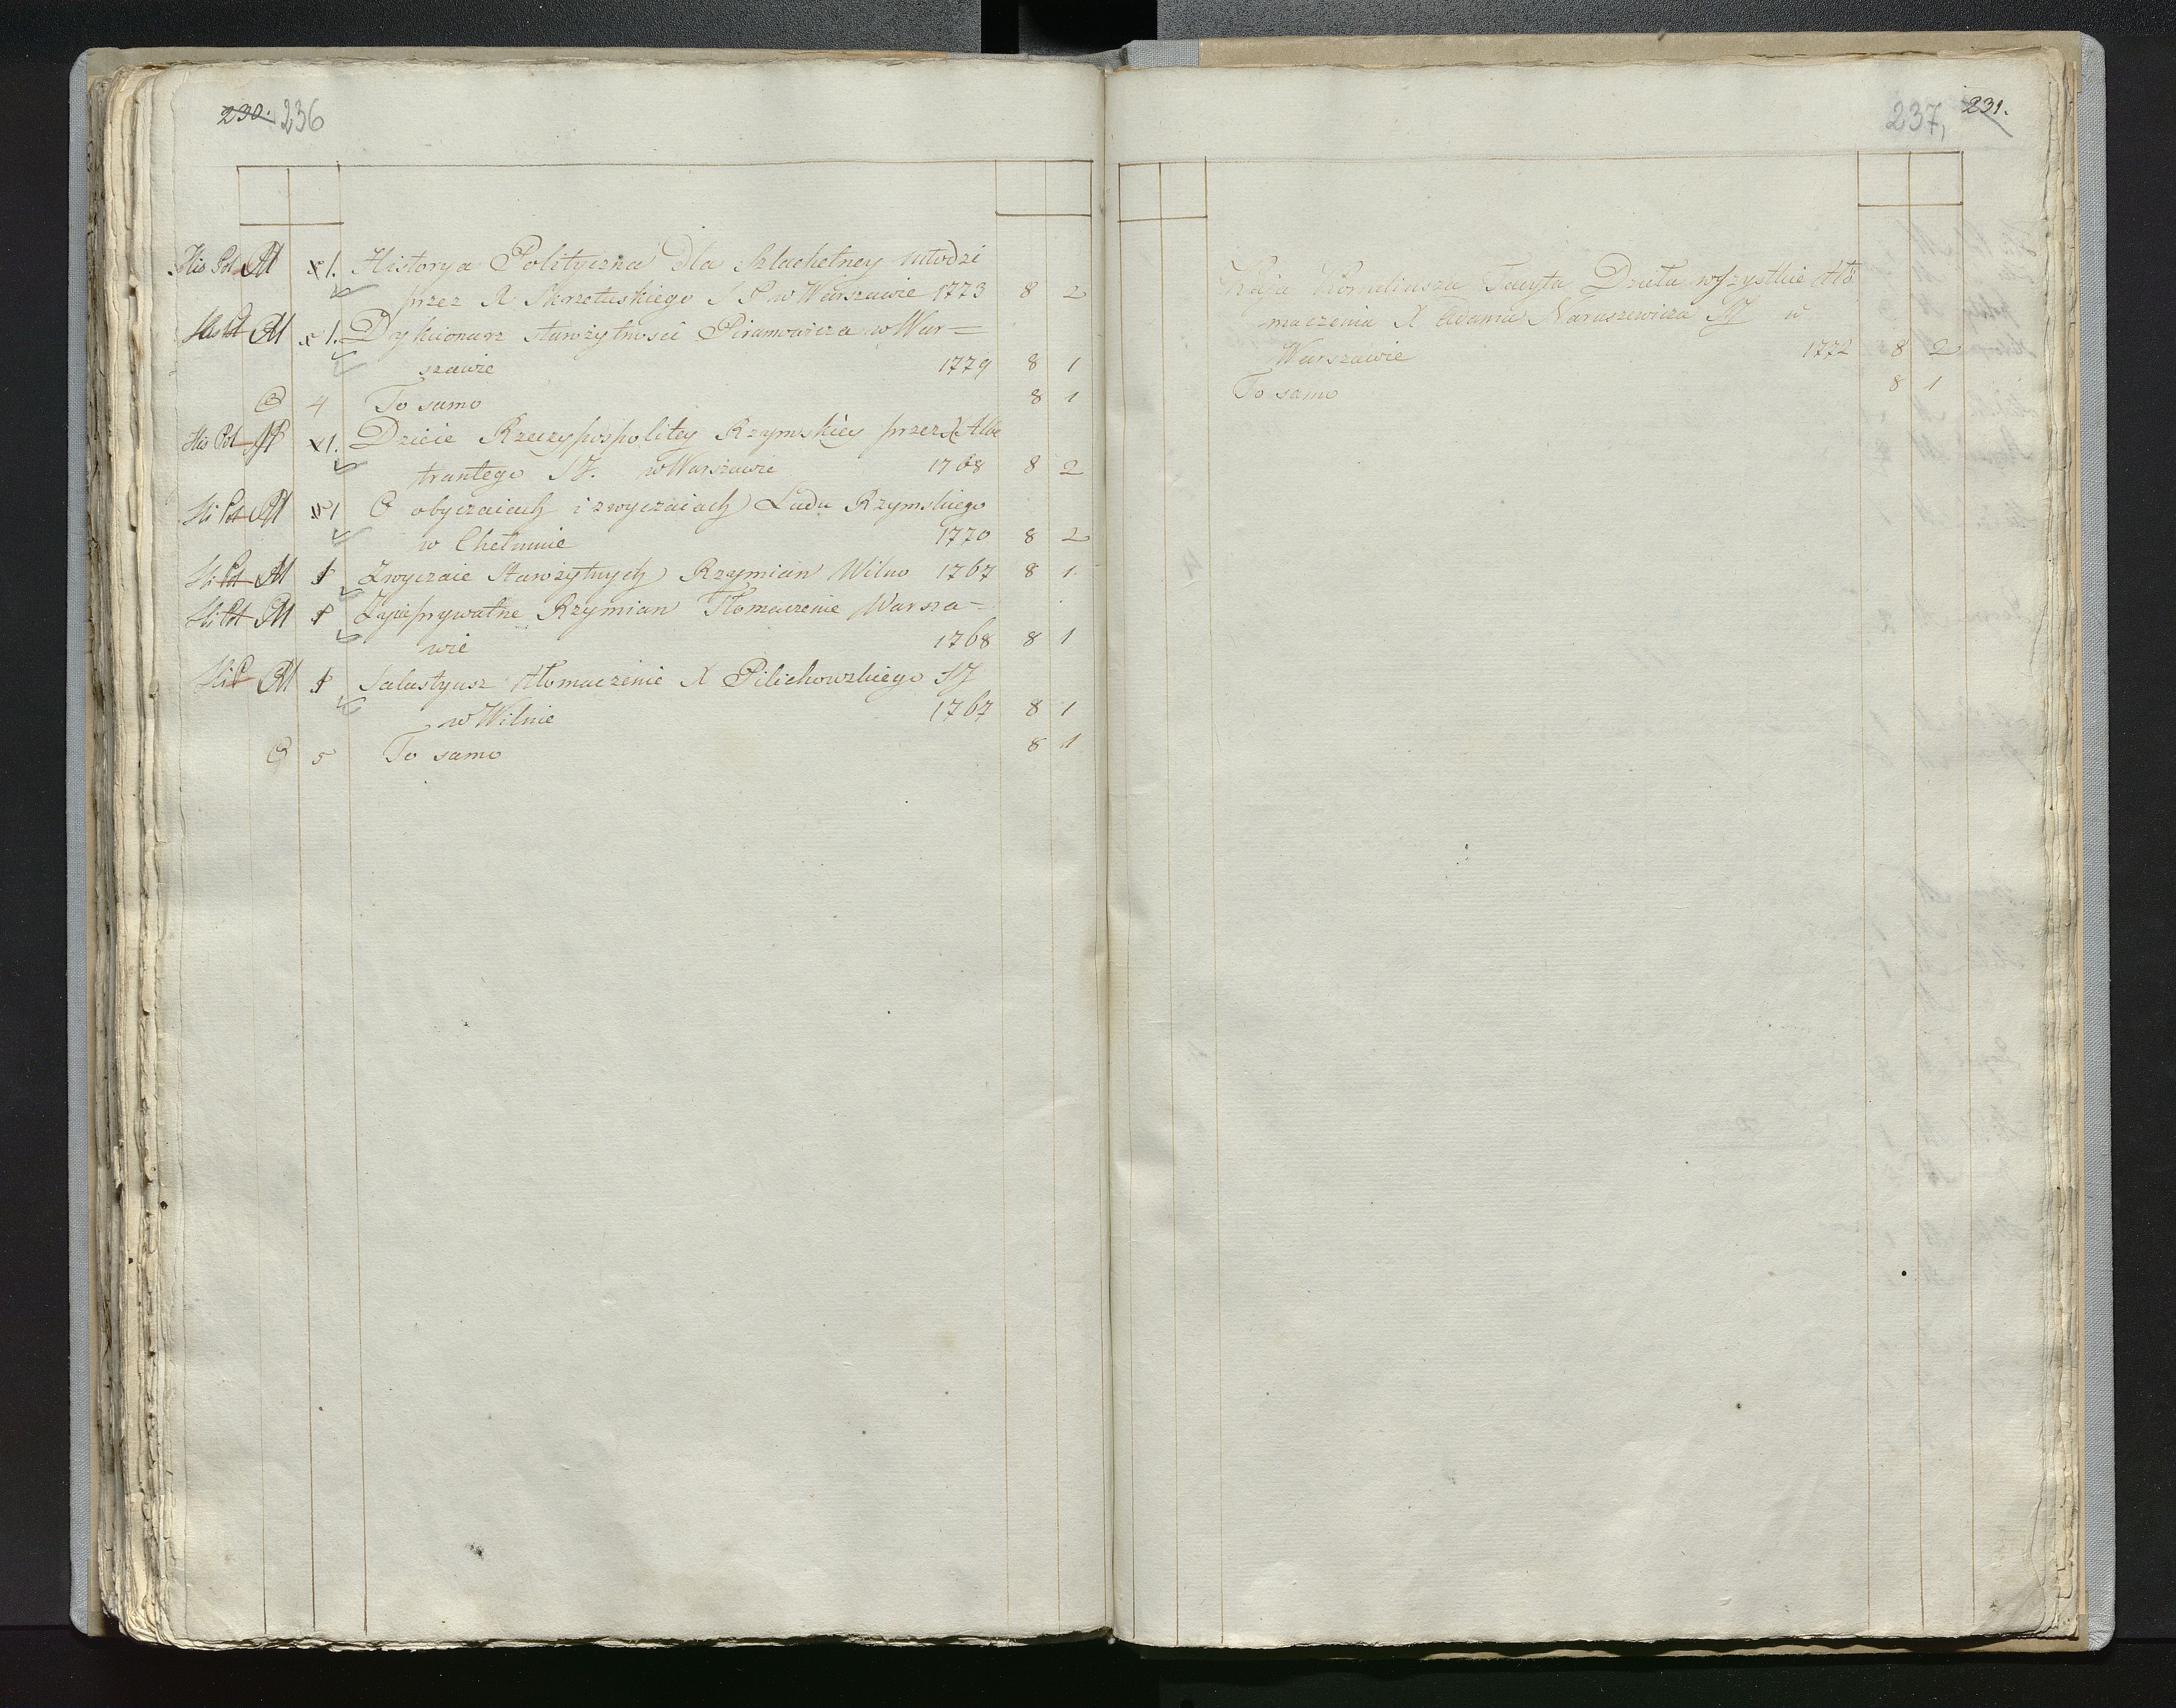 230. 236
His Pol M x 1. Historya Polityczna Dla Szlachetney Młodzi
przez X Skrzetuskiego S P w Warszawie 1773 8 2
His Pol M x 1. Dykcionarz starożytnosci Piramowicza w War=
szawie 1779 8 1
4 To samo 8 1
His Pol M x 1. Dzieie Rzeczypospolitey Rzymskiey przez X Albe
trantego SJ. w Warszawie 1768 8 2
Hi Pol M 1 O obyczaiach i zwyczaiach Ludu Rzymskiego
w Chełmnie 1770 8 2
Hi Pol M 1 Zwyczaie Starożytnych Rzymian Wilno 1767 8 1
Hi Pol M 1 Zycie prywatne Rzymian Tłomaczenie Warsza=
wie 1768 8 1
Hi P M 1 Salustyusz tłomaczenie X Pilichowskiego SJ
w Wilnie 1767 8 1
5 To samo 8 1
237, 231.
Kaja Korneliusza Tacyta Dzieła wszystkie tło
maczenia X Adama Naruszewicza SJ w
Warszawie 1772 8 2
To samo 8 1